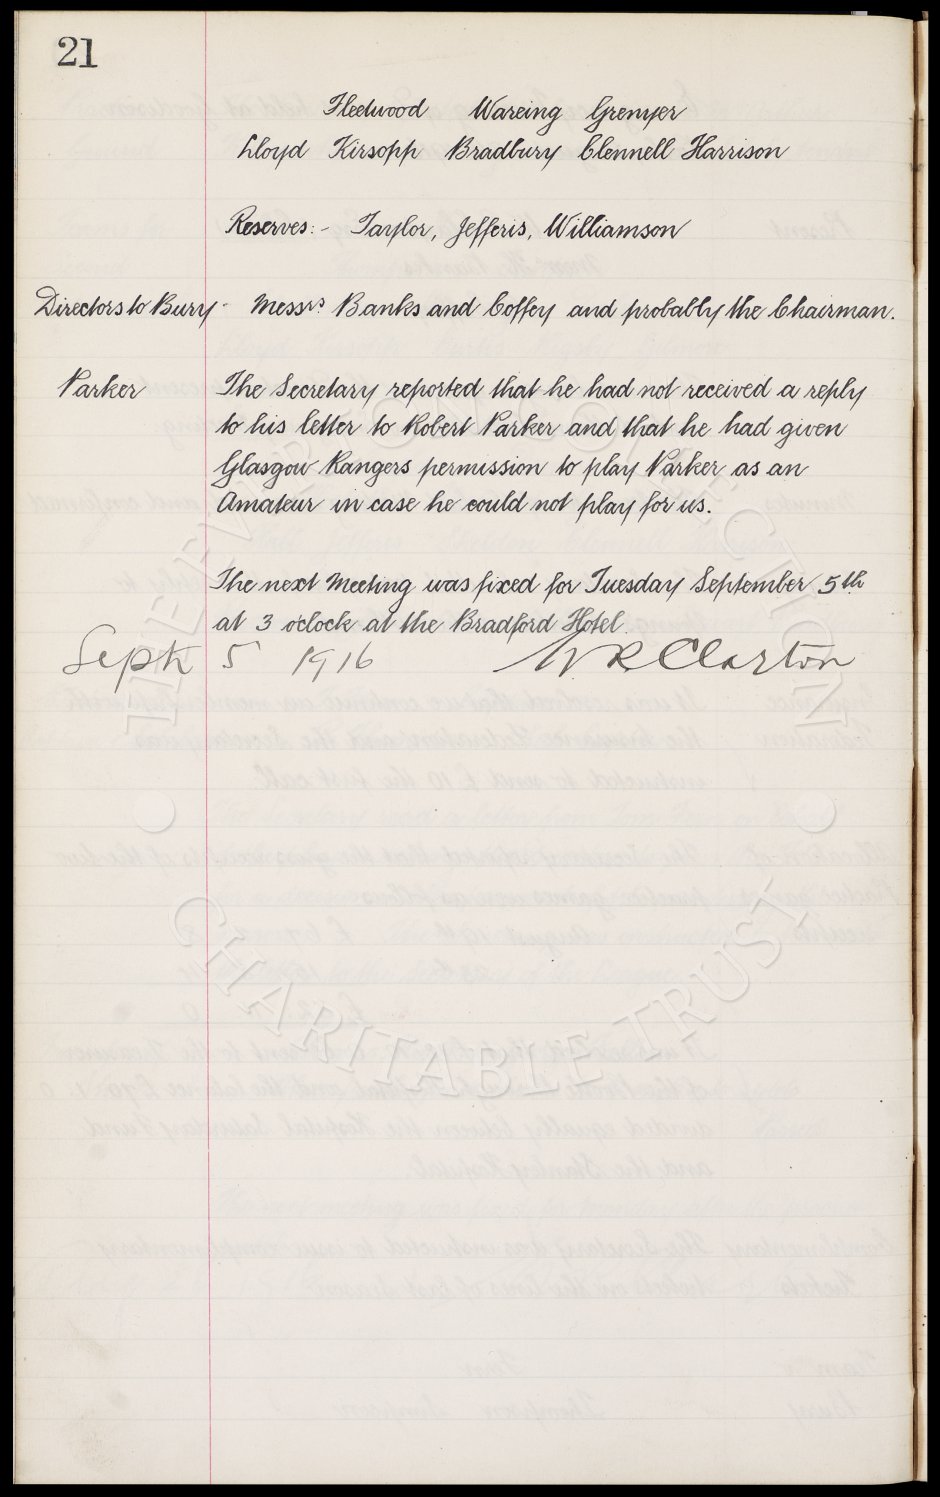 21
Fleetwood Wareing Grenyer
Lloyd Kirsopp Bradbury Clennell Harrison
Reserves:- Taylor, Jefferis, Williamson
Directors to Bury - Messrs. Banks and Coffey and probably the Chairman.
Parker The Secretary reported that he had not received a reply
to his letter to Robert Parker and that he had given
Glasgow Rangers permission to play Parker as an
Amateur in case he could not play for us.
The next Meeting was fixed for Tuesday September 5th
at 3 o'clock at the Bradford Hotel.
Sept 5 1916 W R Clayton
THE EVERTON COLLECTION
CHARITABLE TRUST